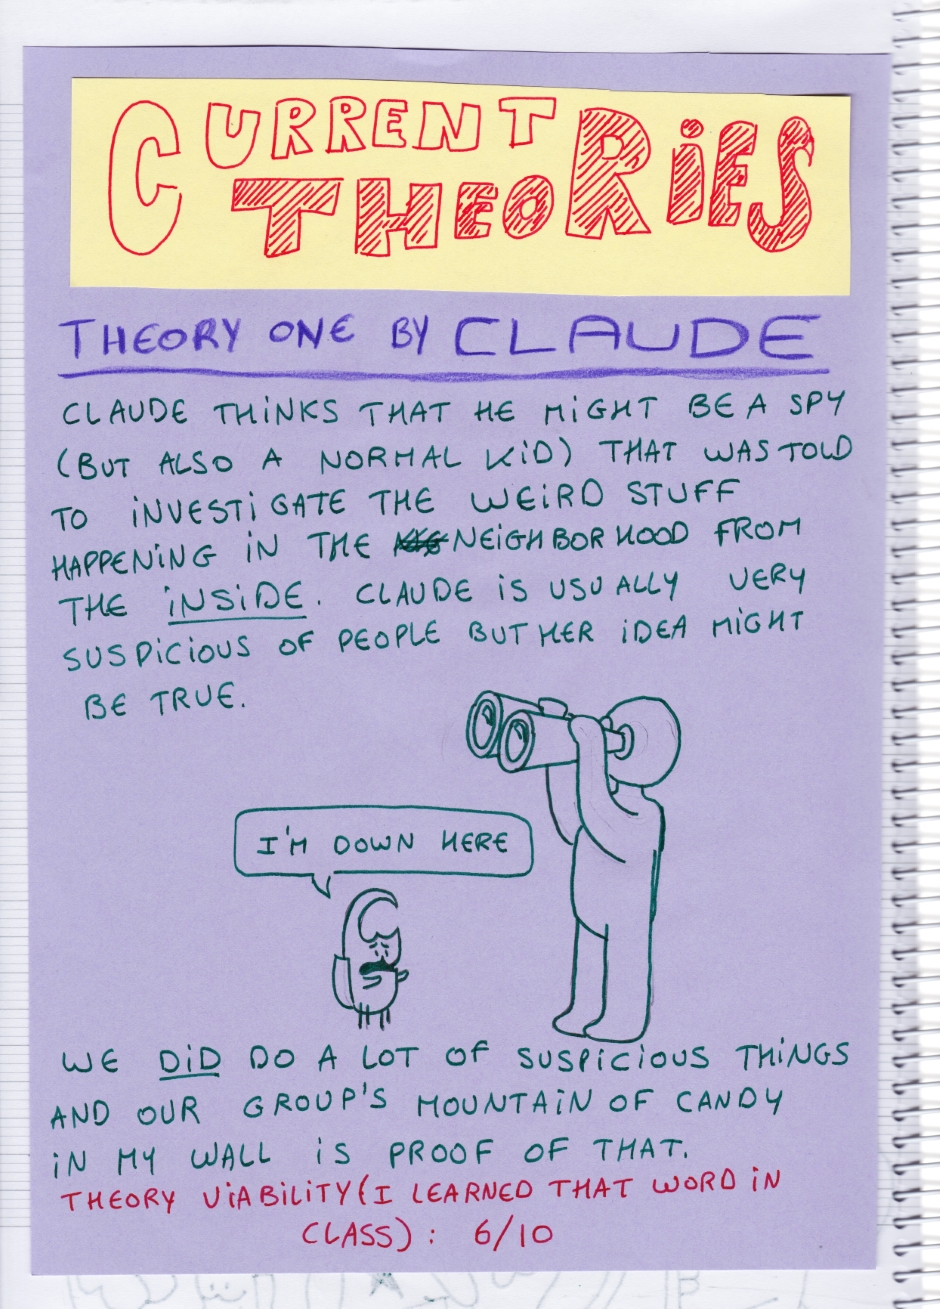 CURRENT
THEORIES
THEORY ONE BY CLAUDE
CLAUDE THINKS THAT HE MIGHT BE A SPY
(BUT ALSO A NORMAL KID) THAT WAS TOLD
TO INVESTIGATE THE WEIRD STUFF
HAPPENING IN THE NEIGHBORHOOD FROM
THE INSIDE. CLAUDE IS USUALLY VERY
SUSPICIOUS OF PEOPLE BUT HER IDEA MIGHT
BE TRUE.
I'M DOWN HERE
WE DID DO A LOT OF SUSPICIOUS THINGS
AND OUR GROUP'S MOUNTAIN OF CANDY
IN MY WALL IS PROOF OF THAT.
THEORY VIABILITY (I LEARNED THAT WORD IN
CLASS): 6/10